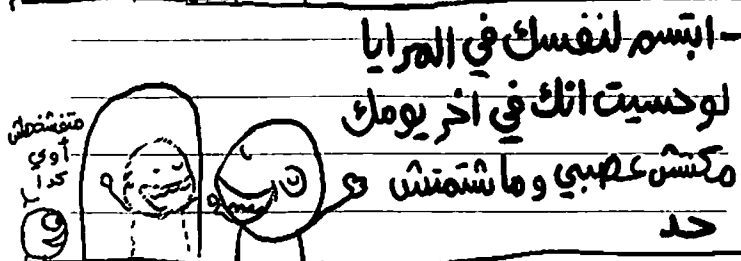 - ابتسم لنفسك في المرايا
لو حسيت انك في اخر يومك
مكنتش عصبي وما شتمتش
حد
متفشخهاش
أوي
كدا